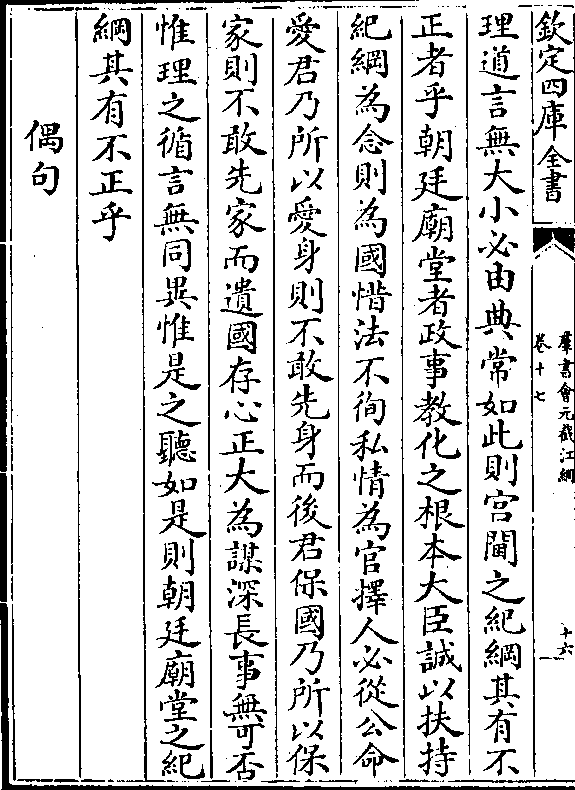 欽定四庫全書
羣書會元截江網
卷十七
十六
理道言無大小必由典常如此則宫閫之紀綱其有不
正者乎朝廷廟堂者政事教化之根本大臣誠以扶持
紀綱為念則為國惜法不徇私情為官擇人必從公命
愛君乃所以愛身則不敢先身而後君保國乃所以保
家則不敢先家而遺國存心正大為謀深長事無可否
惟理之循言無同異惟是之聽如是則朝廷廟堂之紀
綱其有不正乎
偶句